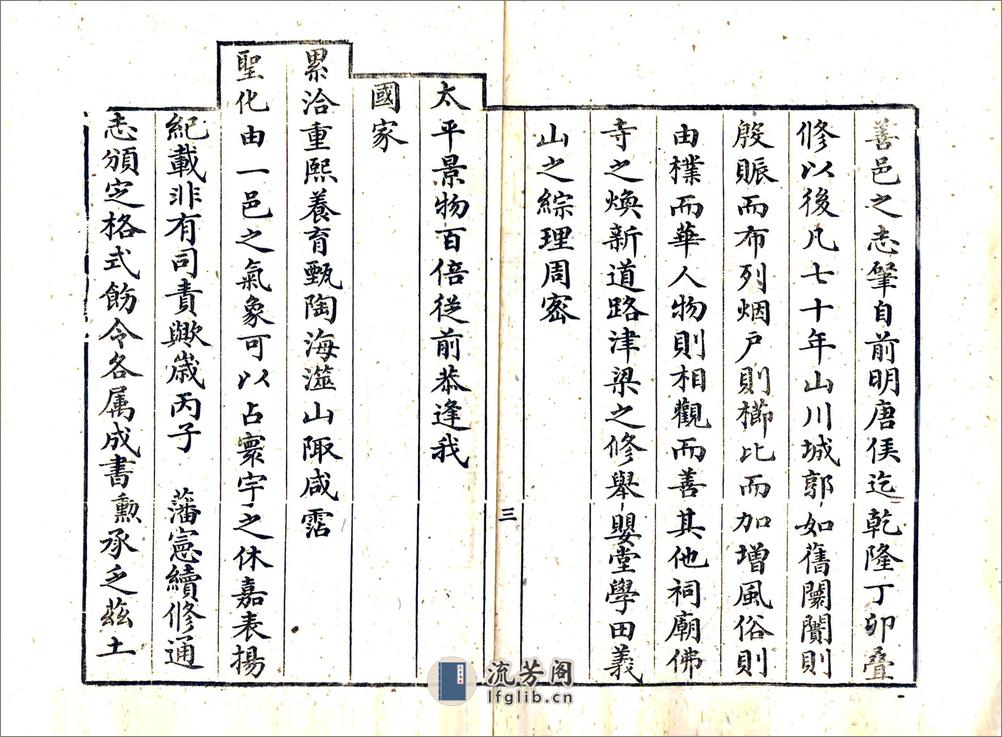 善邑之志肇自前明唐侯迄乾隆丁卯疊
修以後凡七十年山川城郭如舊闤闠則
殷賑而布列烟戶則櫛比而加增風俗則
由樸而華人物則相觀而善其他祠廟佛
寺之煥新道路津梁之修舉嬰堂學田義
山之綜理周密
三
太平景物百倍從前恭逢我
國家
累洽重熙養育甄陶海澨山陬咸霑
聖化由一邑之氣象可以占寰宇之休嘉表揚
紀載非有司責歟嵗丙子 藩憲續修通
志頒定格式飭令各属成書勳承乏茲土
流芳阁
lfglib.cn